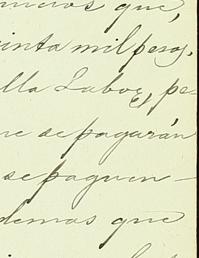 que,
inta mil pesos,
lla Laboz, pe-
ue se pagarán
se paguen -
demas que